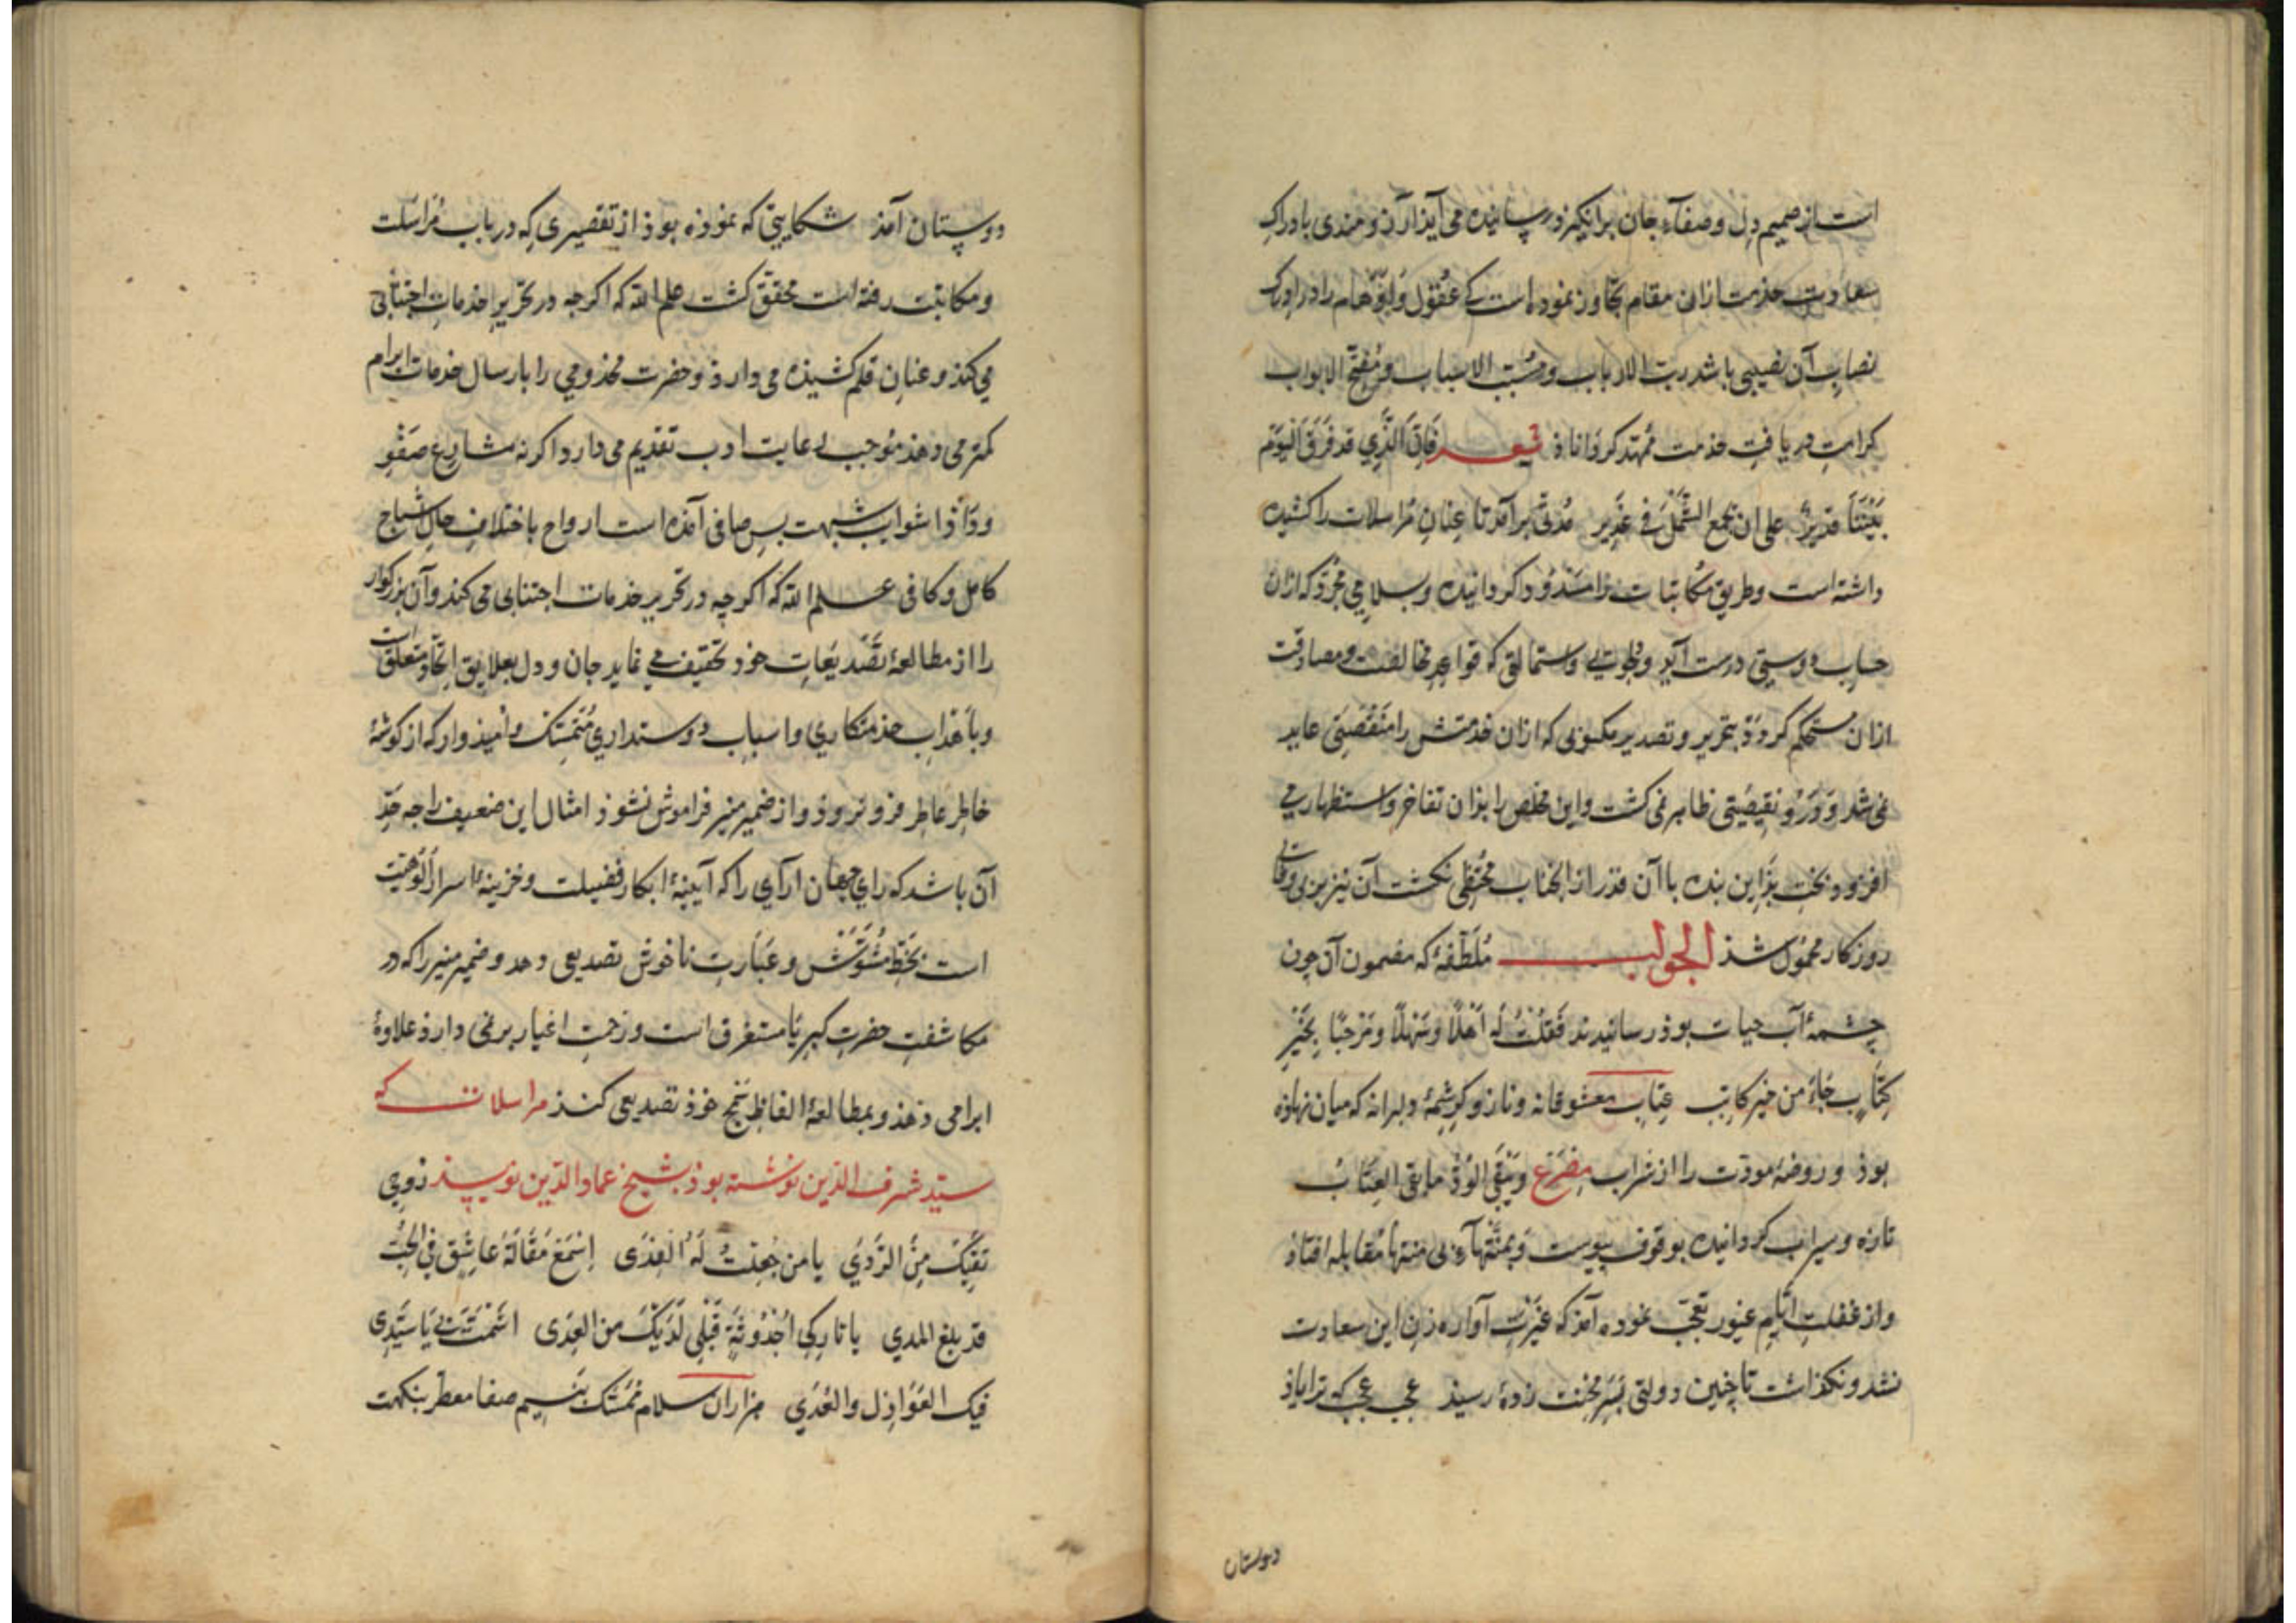 است از صمیم دل و صفاء جان برانگیز و رسانیده می آید آرزومندی بادراک
سعادت خدمت ازان مقام تجاوز نموده است که عقول و اوهام را در ادراک
نصاب آن نصیبی باشد رب الارباب و مسبب الاسباب و مفتح الابواب
کرامت دریافت خدمت ممهد کرداناد شعر فَاِنَّ الَّذِي قد فَرَّقَ الیَوْمَ
بَیْنَنَا قَدِیرٌ علی ان یجمع الشَّمْلَ فی غَدِیر مُدتی برآمد تا عِنانِ مراسلات را کشیده
داشته است و طریق مکاتبات را مسدود کردانیده و بسلامی مجرد که ازان
حساب دوستی درست آید و دلجویی و استمالتی که قواعد مخالفت و مصادقت
ازان مستحکم کردد بتحریر و تصدیر مکتوبی که ازان خدمتش را منقصتی عاید
نمی شد و نقیصتی ظاهر نمی کشت و این مخلص را بذان تفاخر و استظهار می
افزود و بخت بد این بنده با آن قدر از انجناب محتظی نکشت آن نیز بر بی وفائی
روزکار محمول شذ الجواب مُلَطَّفهٔ که مضمون آن چون
چشمهٔ آب حیات بوذ رسانیدند فَقُلْتُ لَه اَهْلًا وَسَهْلًا وَمَرْحَبًا بِخَیْرِ
کِتَابٍ جَاءَ من خیر کاتب عِتابِ معشوقانه و ناز و کرشمهٔ دلبرانه که میان نهاذه
بوذ و روضهٔ مودّت را از شراب مِصْرَع وَیَبْقَی الوُدُّ مابقی العِتَابُ
تازه و سیراب کردانیده بوقوف پیوست و بمثنهاء بی منتها مقابله افتاذ
و از غفلت ایّامِ غیور تعجّب نموده آمذ که غیرتِ آواره زن این سعادت
نشد و نکذاشت تا چنین دولتی بسَرِ محنت زدهٔ رسیذ عجب عجب که ترا یاذ
دوستان
دوستان آمذ شکایتی که نموذه بوذ از تقصیری که در باب مُراسَلت
و مکاتبت رفته است محقق کشت علم الله که اکرچه در تحریر خدمات اجتنابی
می کنذ و عنان قلم کشیذه می دارذ و حضرت مخذومی را بارسال خدمات ابرام
کمتر می دهذ موجب رعایت ادب تقدیم می دارد اکر نه مشارع صَفْوِ
وداد از شوایب شبهت بس صافی آمذه است ارواح باختلاف حال اشباح
کامل و کافی علم الله که اکرچه در تحریر خدمات اجتنابی می کند و آن بزرکوار
را از مطالعهٔ تصدیعات خود تخفیف می نماید جان و دل بعلایق اتحاد متعلق است
و باهداب خدمتکاری و اسباب دوستداری مُتَمسِّک و امیذوار که از کوشهٔ
خاطر عاطر فرو نروذ و از ضمیر منیر فراموش نشوذ امثال این ضعیف را چه حدِّ
آن باشد که رای جهان آرای را که آیینهٔ ابکار فضیلت و خزینهٔ اسرار اُلوهیت
است بخَطِّ مُشَوَّش و عبارت ناخوش تصدیعی دهد و ضمیر منیر را که در
مکاشفت حضرت کبریا مستغرق است و زحمت اغیار بر نمی دارذ علاوهٔ
ابرامی دهذ و بمطالعهٔ الفاظ سَمِجِ خوذ تصدیعی کنذ مراسلات که
سیّد شرف الدّین نوشته بوذ بشیخ عماد الدّین نویسذ رُوحِي
تَقِیكَ مِنَ الرَّدَي یا من جُعِلْتُ لَهُ الفِدَی اِسْمَعْ مَقَالَةَ عَاشِقٍ فی الحُبِّ
قد بلغ المدي یا تارِكِي اُحْدُوثَةً قَبْلِي لَدَیْكَ من العِدَی اشمَتَّ بی یَا سَیِّدِی
فیك العَوَاذِل والعُدَي هزاران سلام تمسّک بنسیم صفا معطر بنکهت